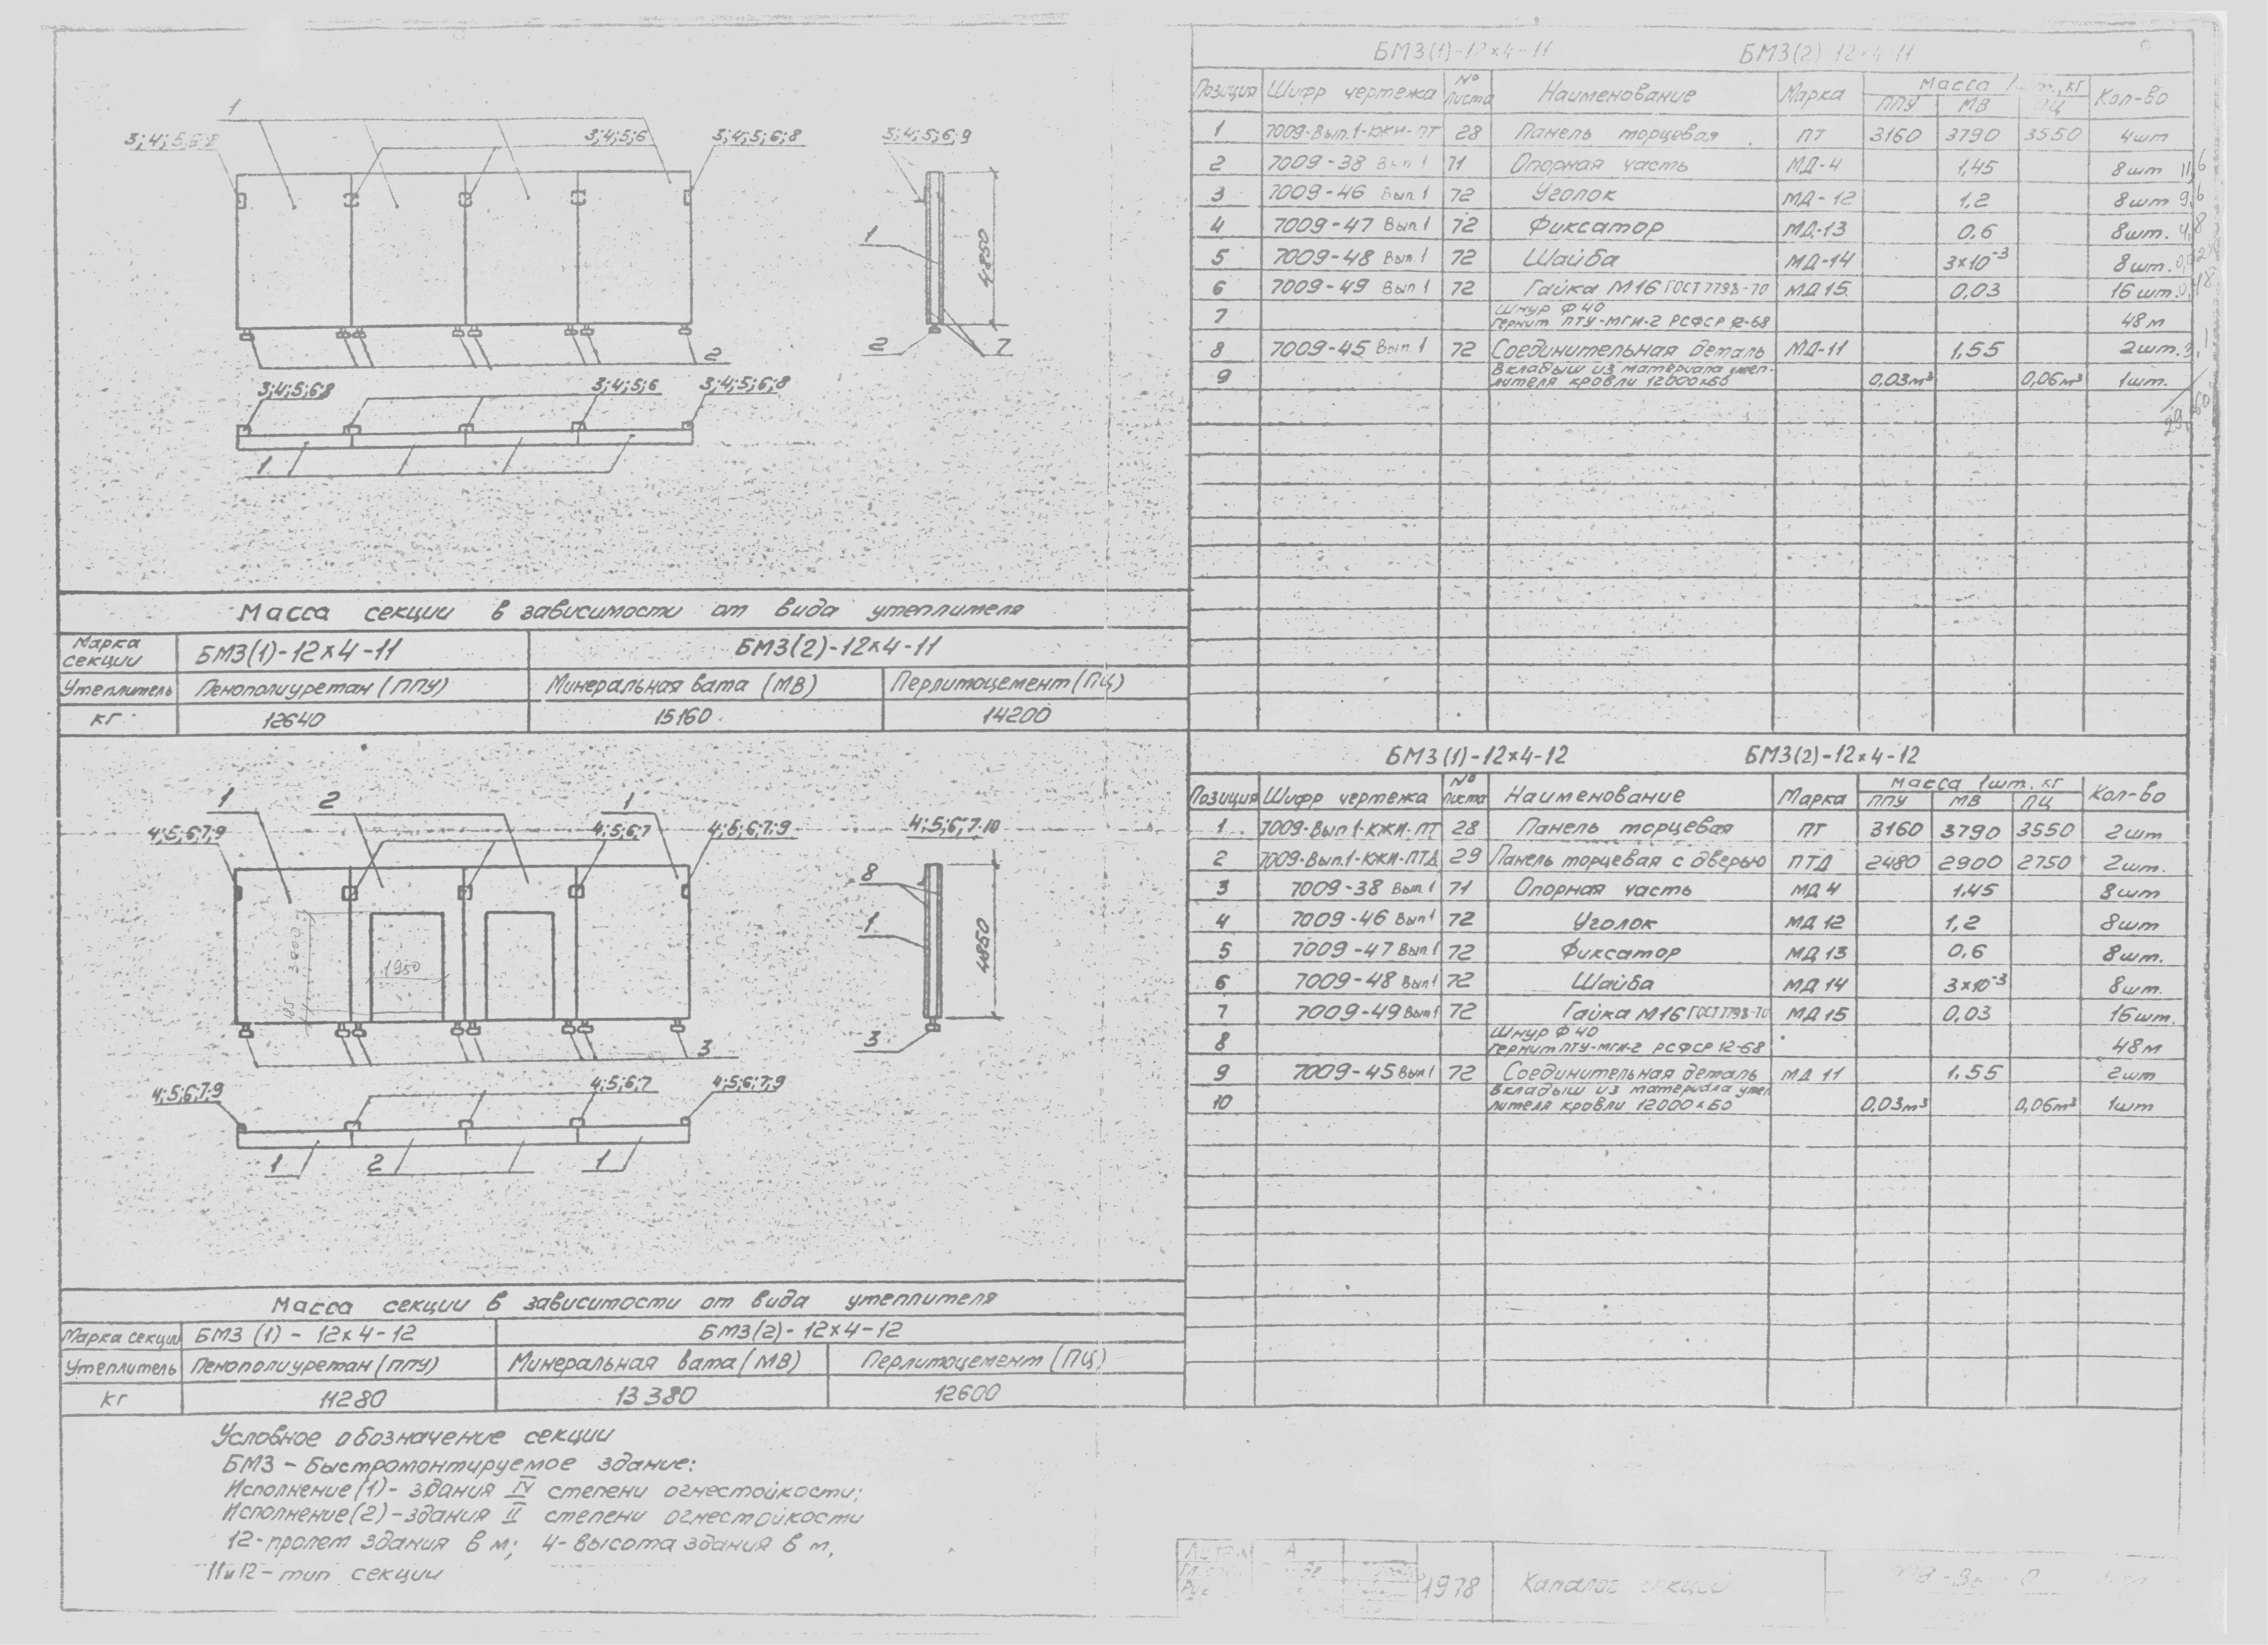 1
3;4;5;6;8
3;4;5;6
3;4;5;6;8
3;4;5;6;9
1
4850
2
2
7
3;4;5;6;8
3;4;5;6
3;4;5;6;8
1
Масса секции в зависимости от вида утеплителя
Марка секции БМЗ(1)-12×4-11 БМЗ(2)-12×4-11
Утеплитель Пенополиуретан (ППУ) Минеральная вата (МВ) Перлитоцемент (ПЦ)
кг 12640 15160 14200
1 2 1
4;5;6;7;9 4;5;6;7 4;5;6;7;9 4;5;6;7;10
8
1
4850
3000
1950
185
3
3
4;5;6;7;9 4;5;6;7 4;5;6;7;9
1 2 1
Масса секции в зависимости от вида утеплителя
Марка секции БМЗ (1) - 12×4-12 БМЗ(2)- 12×4-12
Утеплитель Пенополиуретан (ППУ) Минеральная вата (МВ) Перлитоцемент (ПЦ)
кг 11280 13380 12600
Условное обозначение секции
БМЗ - Быстромонтируемое здание:
Исполнение (1)- здания IV степени огнестойкости;
Исполнение (2)-здания II степени огнестойкости
12-пролет здания в м; 4-высота здания в м,
11и12-тип секции
БМЗ(1)-12×4-11 БМЗ(2)-12×4-11
Позиция Шифр чертежа № листа Наименование Марка Масса 1шт., кг Кол-во
ППУ МВ ПЦ
1 7009-Вып.1-КЖИ-ПТ 28 Панель торцевая ПТ 3160 3790 3550 4шт
2 7009-38 Вып 1 71 Опорная часть МД-4 1,45 8шт 11,6
3 7009-46 Вып 1 72 Уголок МД-12 1,2 8шт 9,6
4 7009-47 Вып 1 72 Фиксатор МД-13 0,6 8шт. 4,8
5 7009-48 Вып.1 72 Шайба МД-14 3×10⁻³ 8шт.
6 7009-49 Вып 1 72 Гайка М16 ГОСТ 7798-70 МД 15 0,03 16 шт.
7 Шнур Ф 40
гернит ПТУ-МГИ-2 РСФСР 12-68 48м
8 7009-45 Вып.1 72 Соединительная деталь МД-11 1,55 2шт. 3,1
9 Вкладыш из материала утеп-
лителя кровли 12000×60 0,03м³ 0,06м³ 1шт.
БМЗ(1)-12×4-12 БМЗ(2)-12×4-12
Позиция Шифр чертежа № листа Наименование Марка Масса 1шт. кг Кол-во
ППУ МВ ПЦ
1 7009-Вып 1-КЖИ-ПТ 28 Панель торцевая ПТ 3160 3790 3550 2шт
2 7009-Вып.1-КЖИ-ПТД 29 Панель торцевая с дверью ПТД 2480 2900 2750 2шт.
3 7009-38 Вып.1 71 Опорная часть МД 4 1.45 8шт
4 7009-46 Вып 1 72 Уголок МД 12 1,2 8шт
5 7009-47 Вып 1 72 Фиксатор МД 13 0.6 8шт.
6 7009-48 Вып 1 72 Шайба МД 14 3×10⁻³ 8шт.
7 7009-49 Вып 1 72 Гайка М16 ГОСТ 7798-70 МД 15 0,03 16шт.
8 Шнур Ф 40
гернит ПТУ-МГИ-2 РСФСР 12-68 48м
9 7009-45 Вып 1 72 Соединительная деталь МД 11 1.55 2шт
10 Вкладыш из материала утеп
лителя кровли 12000×60 0,03м³ 0,06м³ 1шт
1978 Каталог секций